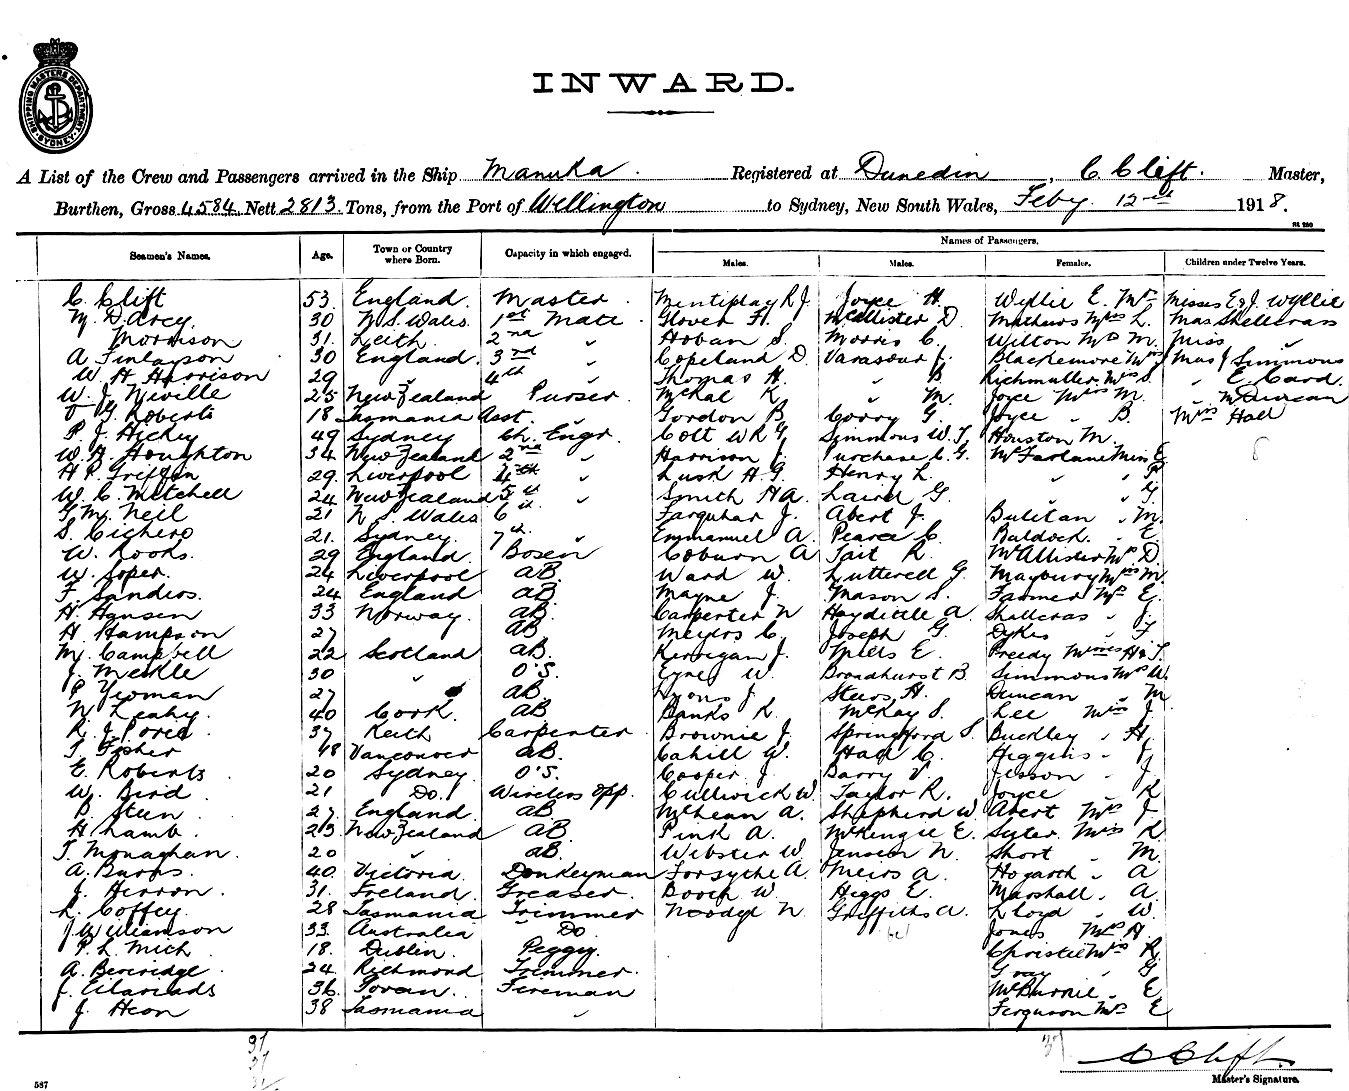 SHIPPING MASTERS DEPARTMENT SYDNEY
INWARD.
A List of the Crew and Passengers arrived in the Ship Manuka. Registered at Dunedin, C Clift. Master,
Burthen, Gross 4584 Nett 2813 Tons, from the Port of Wellington to Sydney, New South Wales, Feby. 12th 1918.
Names of Passengers.
Seamen's Names. Age. Town or Country where Born. Capacity in which engaged. Males. Males. Females. Children under Twelve Years.
C Clift 53. England. Master. Mentiplay R J. Joyce H. Wyllie E. Mrs Misses E & J Wyllie
M. Darcy 30 N. S. Wales. 1st Mate Glover F. McAllister D. Mathews Mrs L. Mas Shellcrass
Morrison 31. Leith 2nd " Hoban S. Morris C. Wilton Mrs M. Miss "
A Finlayson 30 England. 3rd " Copeland D. Vavasour J. Blackemore Mrs Mas J Simmons
W. H Harrison 29 " 4th " Thomas H. " B. Richmuller Mrs S. " E. Card.
W. J Neville 25 New Zealand Purser. McKal K. " M. Joyce Mrs M. " M Duncan
G. Roberts 18 Tasmania Asst. " Gordon B. Corry G. Joyce " B. Mrs Hall
P. J. Hickey 49 Sydney Ch. Engr. Colt W R G. Simmons W. J. Houston M.
W. G. Houghton 34 New Zealand 2nd " Harrison J. Purchase C. G. McFarlane Miss E
H P. Griffin 29. Liverpool 4th " Lusk H. G. Henry L. " " P
W. C. Mitchell 24 New Zealand 5th " Smith H A. Laird G. " " G.
G. M. Neil 21 N. S. Wales 6th " Farquhar J. Abert J. Bulitan " M.
S. Cichero 21. Sydney. 7th " Emmanuel A. Pearce C. Baldock " E
W. Rooks. 29 England. Bosen Coburn A Tait R. McAllister Mrs D.
W. Soper. 24 Liverpool AB. Ward W. Luttrell G. Maybury Mrs M.
F Sanders. 24 England AB. Mayne J. Mason S. Farmer Mrs E.
H. Hansen 33 Norway. AB. Carpenter N Haydittle A. Shellcras " J.
H. Hampson 27 " AB Meyers C. Joseph G. Dykes " F
M. Campbell 22 Scotland AB. Kerrigan J. Mills E. Preedy Misses H & S.
J. Meikle 30 " O'S. Eyre W. Broadhurst B. Simmons Mrs W.
P. Yeoman 27 AB. Lyons J. Steers H. Duncan " M
N. Leahy. 40 Cork. AB Banks R. McKay S. Lee Miss J.
R. J. 37 Leith Carpenter Brownie J. Springford S. Buckley " H.
T. Fisher 18 Vancouver AB. Cahill W. Hall C. Higgins " J.
E. Roberts 20 Sydney O'S. Cooper J. Barry V. Jesson " J.
W. Bird. 21 Do. Wireless Opp. Cullwick W. Taylor R. Joyce " K
B. Steen 27. England AB. McLean A. Shepherd W. Abert Mrs J
H. Lamb. 23 New Zealand AB. Pink A. McKenzie E. Syter Miss R.
T. Monaghan. 20 " AB. Webster W. Jensen N. Short " M.
A. Burns. 40. Victoria. Donkeyman Forsythe A. Meirs A. Hogarth " A
J. Herron. 31. Ireland. Greaser. Booth W. Higgs E. Marshall " A.
L. Coffey. 28 Tasmania Trimmer Griffiths A. Lloyd " W.
J Williamson 33. Australia Do Jones Mrs H.
P. L. Mich 18. Dublin. Peggy. Christie Mrs R
A. Beveridge. 24. Richmond Trimmer. Gray " G
J. 36. Fireman McBurnie " E
J. Heon 38 Tasmania " Ferguson Mrs E
C Clift.
Master's Signature.
587